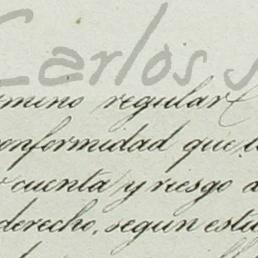 Carlos
mino regular
onformidad que
cuenta y riesgo
derecho, segun